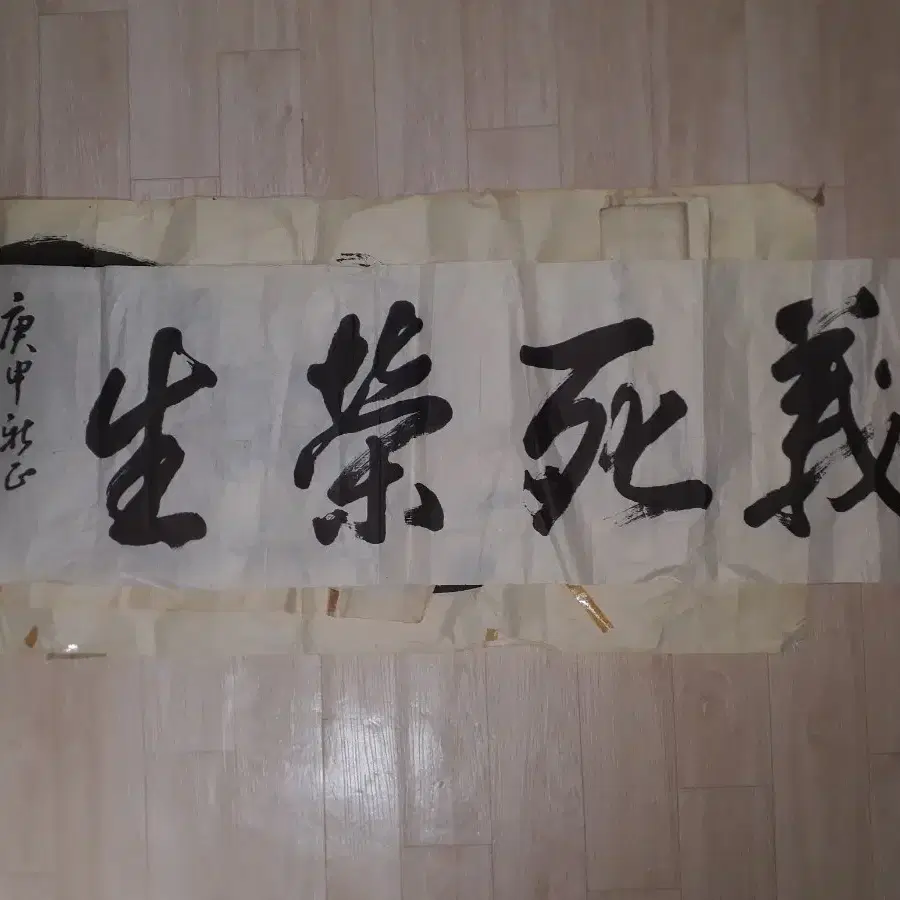 義死榮生
庚申新正